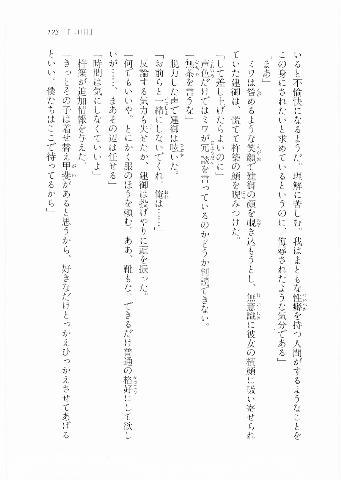 いると不愉快になるとようだ、理解に苦しむ。我はまともな性癖を持つ人間がするようなことを
この身にされたいと求めているというのに、侮辱されたような気分である」
「まあ」
ミワは咎めるような笑顔で建御の顔を覗き込もうとし、無意識に彼女の積顔に吸い寄せられ
ていた建御は、慌てて杵築の顔を睨みつけた。
「して差し上げたらよいのに」
声色だけではミワが冗談を言っているのかどうか判読できない。
「無茶を言うな」
脱力した声で建御は呟いた。
「お前らと一緒にしないでくれ、俺は……」
反論する気力も失せたか、建御は投げやりに頭を振った。
「何でもいいや。とにかく服のほうを頼む。ああ、靴もな。できるだけ普通の格好にして欲し
いが……、まあその辺は任せる」
「時間は気にしなくていいよ」
杵築が追加情報を与えた。
「きっとその子は着せ替え甲斐があると思うから、好きなだけとっかえひっかえさせてあげる
といい。僕たちはここで待ってるから」